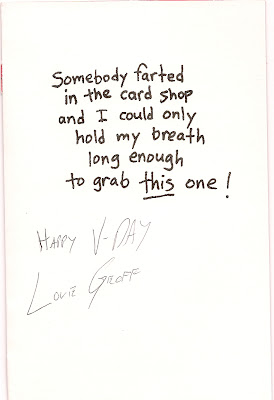 Somebody farted
in the card shop
and I could only
hold my breath
long enough
to grab this one!
HAPPY V-DAY
LOVE GEOFF